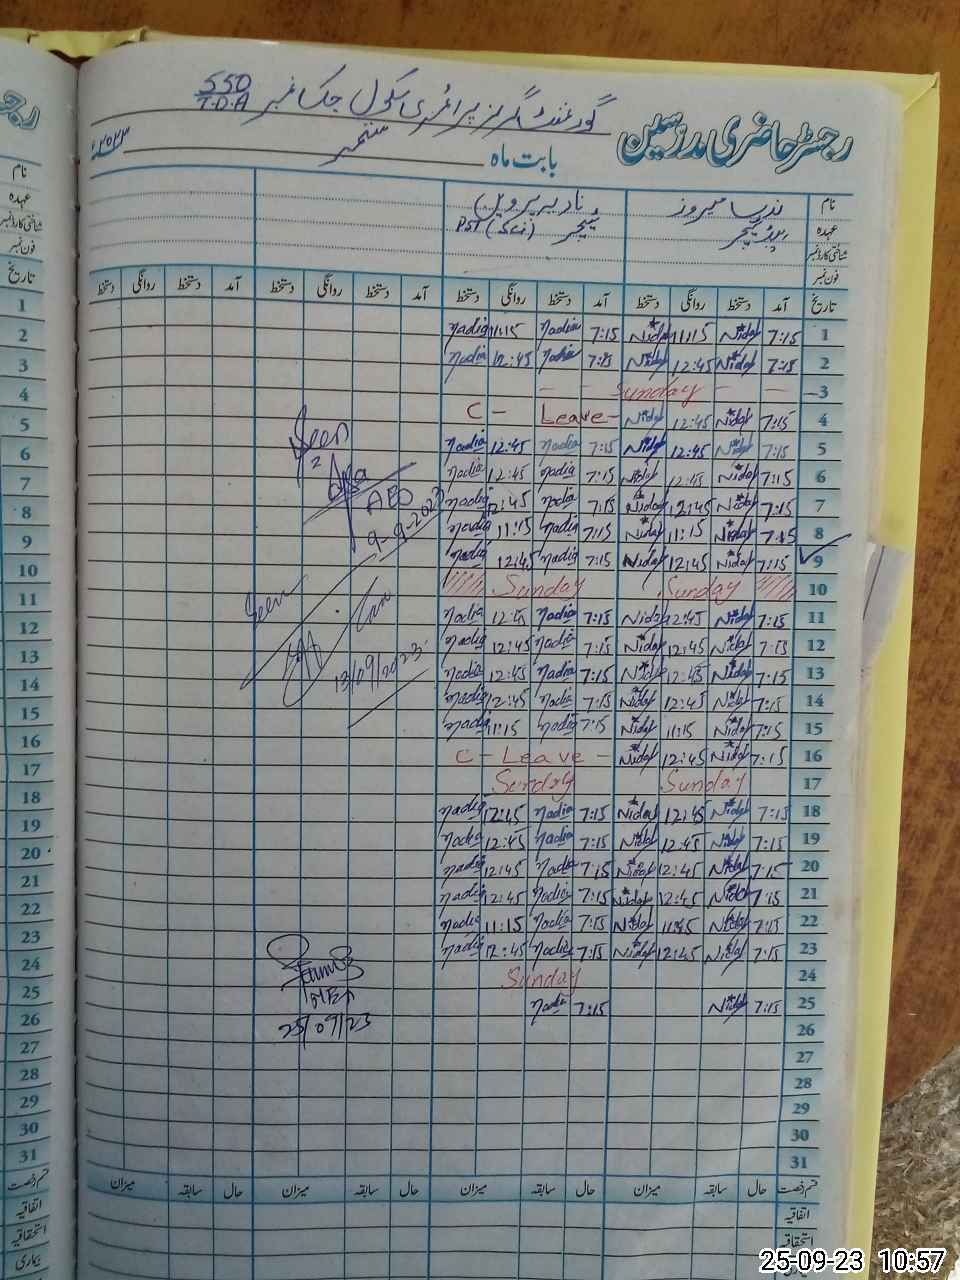 گورنمنٹ گرلز پرائمری سکول چک نمبر 550/T.D.A
رجسٹر حاضری مدرسین
بابت ماہ ستمبر ۲۰۲۳ء
نام نادیہ پروین
عہدہ ٹیچر PST (Sci)
شناختی کارڈ نمبر
فون نمبر
تاریخ آمد دستخط روانگی دستخط آمد دستخط روانگی دستخط آمد دستخط روانگی دستخط آمد دستخط روانگی دستخط
1 7:15 Nida 11:15 Nida 7:15 Nadia 11:15 Nadia
2 7:15 Nida 12:45 Nida 7:15 Nadia 12:45 Nadia
3 Sunday
4 7:15 Nida 12:45 Nida C - Leave -
5 7:15 Nida 12:45 Nida 7:15 Nadia 12:45 Nadia
6 7:15 Nida 12:45 Nida 7:15 Nadia 12:45 Nadia
7 7:15 Nida 12:45 Nida 7:15 Nadia 12:45 Nadia
8 7:15 Nida 11:15 Nida 7:15 Nadia 11:15 Nadia
9 7:15 Nida 12:45 Nida 7:15 Nadia 12:45 Nadia
10 Sunday Sunday
11 7:15 Nida 12:45 Nida 7:15 Nadia 12:45 Nadia
12 7:15 Nida 12:45 Nida 7:15 Nadia 12:45 Nadia
13 7:15 Nida 12:45 Nida 7:15 Nadia 12:45 Nadia
14 7:15 Nida 12:45 Nida 7:15 Nadia 12:45 Nadia
15 7:15 Nida 11:15 Nida 7:15 Nadia 11:15 Nadia
16 7:15 Nida 12:45 Nida C - Leave -
17 Sunday Sunday
18 7:15 Nida 12:45 Nida 7:15 Nadia 12:45 Nadia
19 7:15 Nida 12:45 Nida 7:15 Nadia 12:45 Nadia
20 7:15 Nida 12:45 Nida 7:15 Nadia 12:45 Nadia
21 7:15 Nida 12:45 Nida 7:15 Nadia 12:45 Nadia
22 7:15 Nida 11:45 Nida 7:15 Nadia 11:15 Nadia
23 7:15 Nida 12:45 Nida 7:15 Nadia 12:45 Nadia
24 Sunday
25 7:15 Nida 7:15 Nadia
26
27
28
29
30
31
Seen
AEO
9-9-2023
Seen
13/09/2023
MEA
25/09/23
قسم رخصت حال سابقہ میزان حال سابقہ میزان حال سابقہ میزان حال سابقہ میزان
اتفاقیہ
استحقاقیہ
نام
عہدہ
شناختی کارڈ نمبر
فون نمبر
تاریخ
1
2
3
4
5
6
7
8
9
10
11
12
13
14
15
16
17
18
19
20
21
22
23
24
25
26
27
28
29
30
31
قسم رخصت
اتفاقیہ
استحقاقیہ
بیماری
25-09-23 10:57